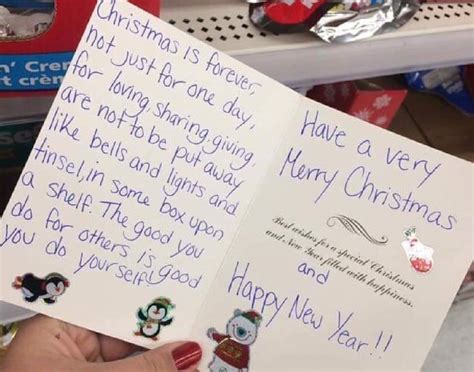 n' Crem
t crèm
Christmas is forever,
not just for one day,
for loving, sharing, giving,
are not to be put away
like bells and lights and
tinsel, in some box upon
a shelf. The good you
do for others is good
you do yourself!
Have a very
Merry Christmas
Best wishes for a special Christmas
and New Year filled with happiness.
and
Happy New Year!!